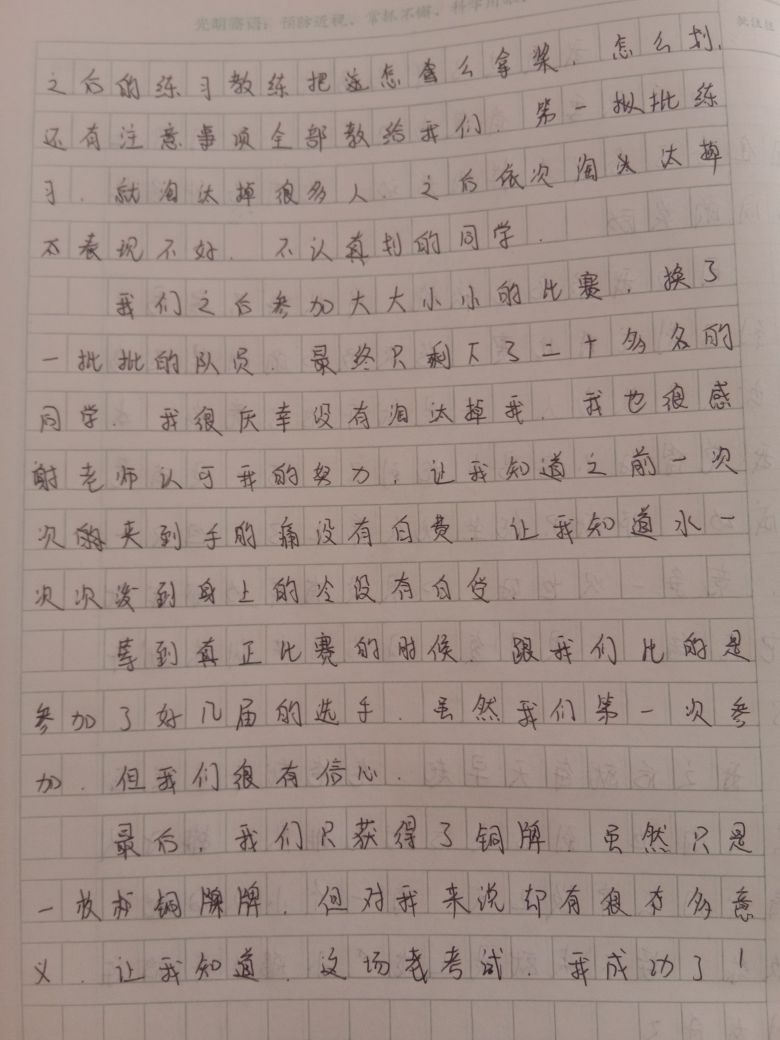 光明寄语：预防近视、常抓不懈、科学用
之后的练习教练把怎么拿桨，怎么划，
还有注意事项全部教给我们。第一批练
习，就淘汰掉很多人，之后依次淘汰掉
表现不好，不认真划的同学。
我们之后参加大大小小的比赛，换了
一批批的队员，最终只剩下了二十多名的
同学，我很庆幸没有淘汰掉我，我也很感
谢老师认可我的努力，让我知道之前一次
次的夹到手的痛没有白费，让我知道水一
次次泼到身上的冷没有白受。
等到真正比赛的时候，跟我们比的是
参加了好几届的选手，虽然我们第一次参
加，但我们很有信心。
最后，我们只获得了铜牌，虽然只是
一枚铜牌，但对我来说却有很多意
义，让我知道，这场考试，我成功了！